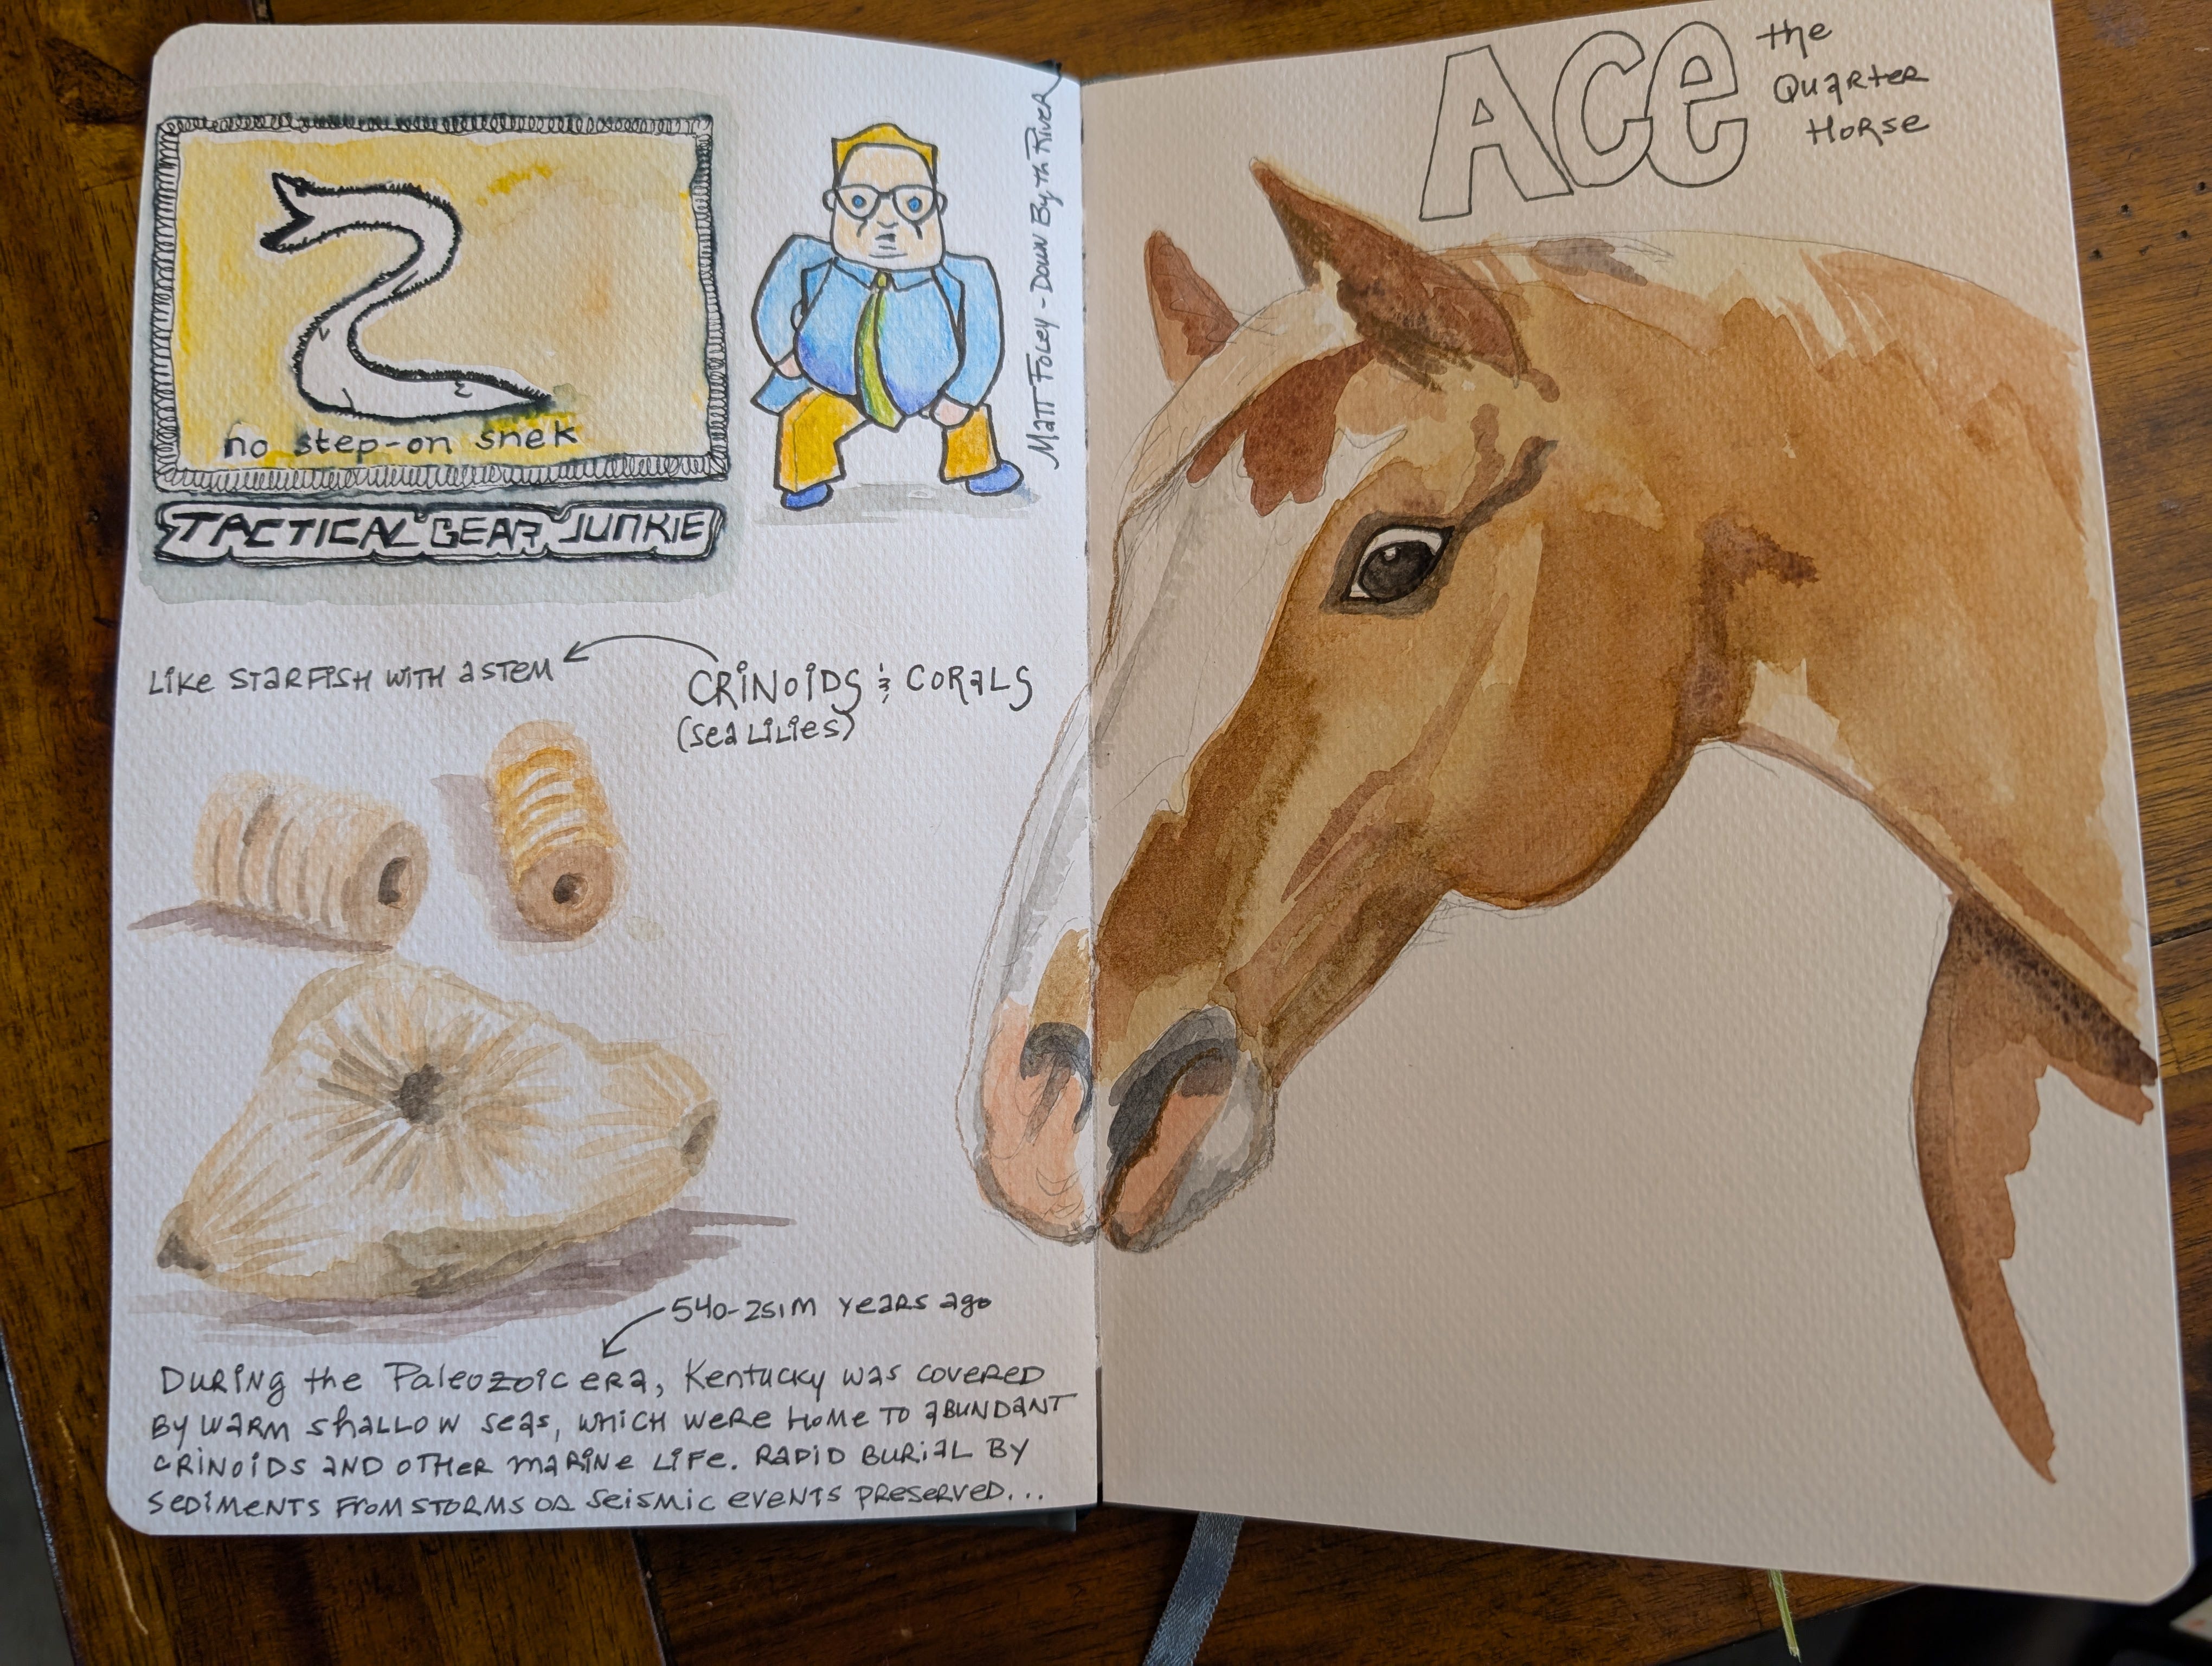 no step-on snek
TACTICAL GEAR JUNKIE
Matt Foley - Down By th River
Like starfish with a stem
Crinoids & Corals
(sea lilies)
540-251M years ago
During the Paleozoic era, Kentucky was covered
by warm shallow seas, which were home to abundant
crinoids and other marine life. Rapid burial by
sediments from storms or seismic events preserved...
Ace
the
Quarter
Horse